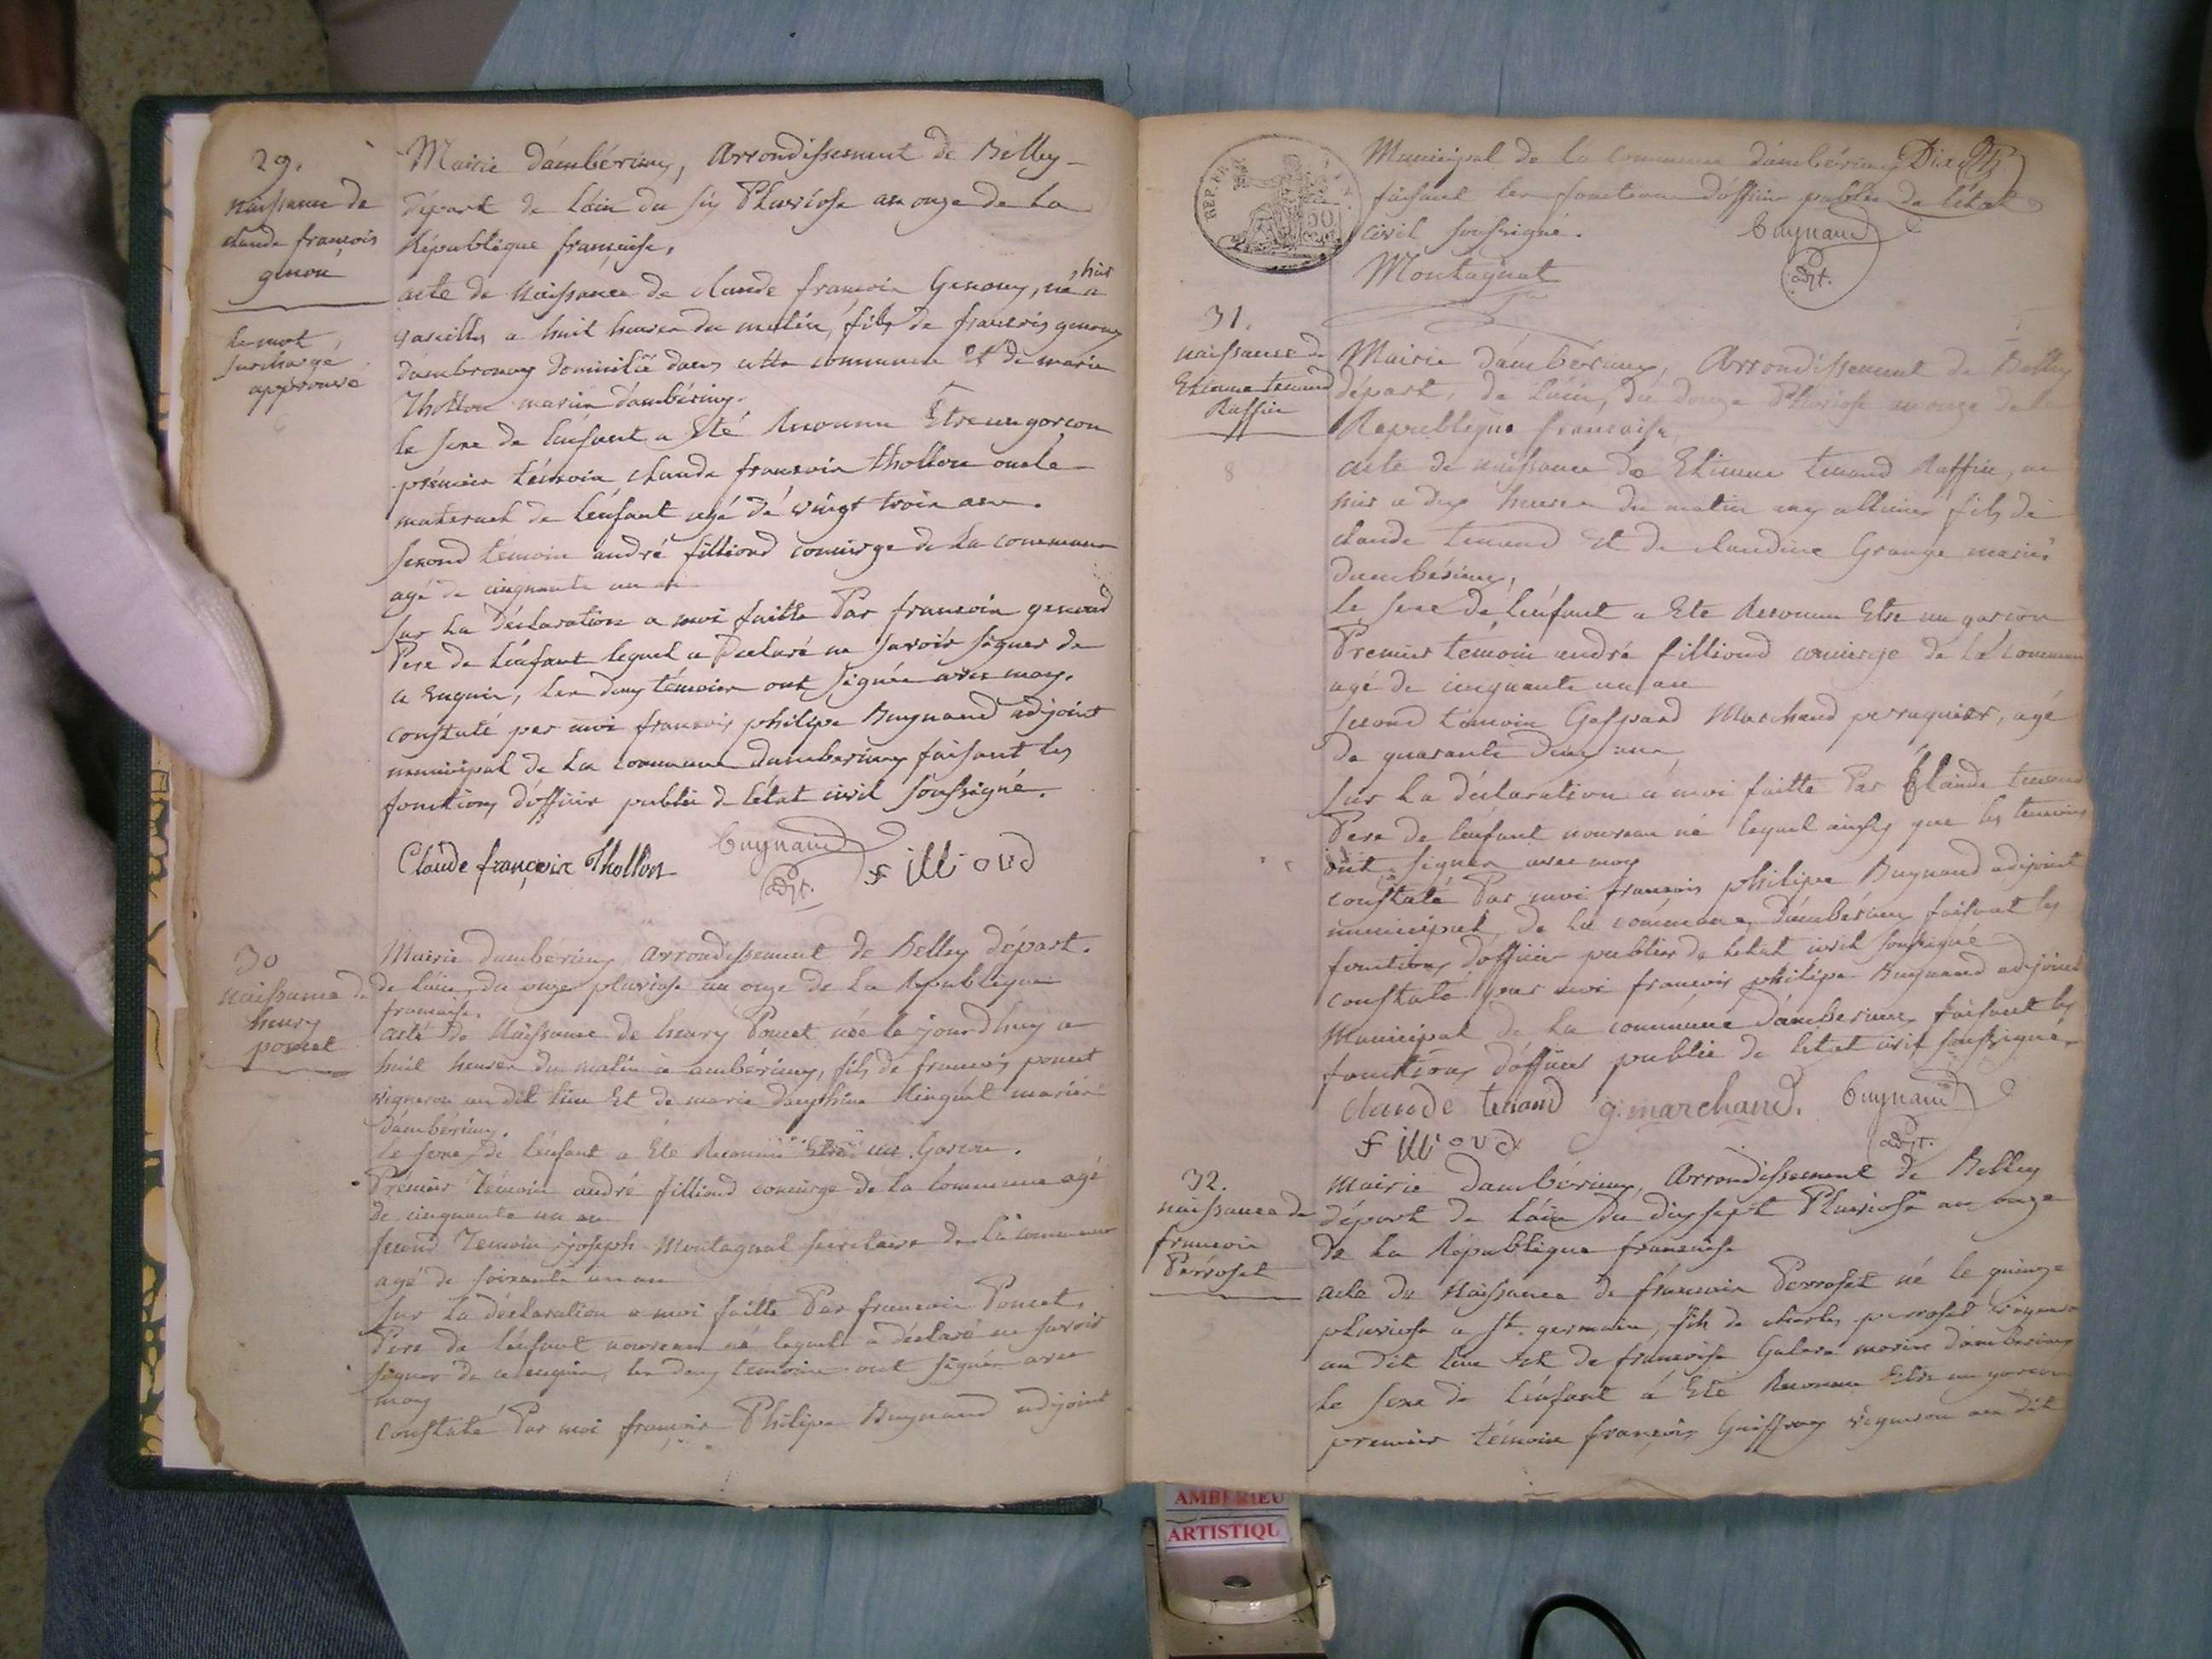 29.
naissance de
claude françois
genou
le mot
surchargé
approuvé
Mairie d'ambérieux, Arrondissement de Belley
départ de l'ain du six Pluviose an onze de la
République française,
acte de Naissance de claude françois Genoux, né hier a
a huit heures du matin, fils de françois genoux
d'ambronay domicilié dans cette commune Et de marie
Thollon mariés d'ambérieux.
le sexe de l'enfant a Eté Reconnu Etre un garçon
prémier témoin claude françois thollon oncle
maternel de l'énfant agé dé vingt trois ans.
second témoin andré fillioud concierge de la commune
agé de cinquante un an
sur la déclaration a moi faitte Par françois genoud
Pere de l'énfant lequel a Declaré ne savoir signer de
ce Enquis, les deux témoins ont signés avec moy.
constaté par moi françois philipe Buynand adjoint
municipal de la commune d'amberieux faisant les
fonctions d'officier public de l'état civil soussigné.
Claude françoix Thollon Buynand adjt. fillioud
30
naissance de
henry
poncet
Mairie d'amberieux Arrondissement de Belley départ.
de l'ain, du onze pluviose an onze de la Republique
francaise.
acte de Naissance de henry Poncet née le jourdhuy a
huit heures du matin a ambérieux, fils de françois poncet
vigneron au dit lieu Et de marie dauphine mariés
d'ambérieux.
le sexe de l'enfant a Eté Reconnu Etre un Garcon.
Premier Témoin andré filliond concierge de la commune agé
de cinquante un an
second Temoin joseph Montagnat secretaire de la commune
agé de soixante un an
sur la déclaration a moi faitte Par francois Poncet,
Pere de l'énfant nouveau né lequel a déclaré ne savoir
signer de ce enquis, les deux temoins ont signés avec
moy
constaté Par moi françois Philipe Buynand adjoint
REP. FR
50
Municipal de la commune d'ambérieux
faisant les fonctions d'officier public de l'état
civil soussigné. Buynand
Montagnat adjt.
31.
naissance de
Etienne tenand
Ruffin
8
Mairie d'ambérieux, Arrondissement de Belley
départ. de l'ain, du douze Pluviose an onze de la
République francaise
acte de naissance de Etienne tenand Ruffin, né
hier a dix heures du matin fils de
claude tenand Et de claudine Grange mariés
d'ambérieux,
le sexe de l'énfant a Ete Reconnu Etre un garcon
Premier témoin andré filliond concierge de la commune
agé de cinquante un an
second témoin Gaspard Marchand perruquier, agé
de quarante deux ans
sur la déclaration a moi faitte Par Claude tenand
Pere de l'énfant nouveau né lequel ainsy que les temoins
ont signés avec moy
constaté Par moi françois philipe Buynand adjoint
municipal, de la commune, d'ambérieux faisant les
fonctions d'officier public de letat civil soussigné
constaté par moi françois philipe Buynand adjoint
Municipal de la commune d'amberieux faisant les
fonctions d'officier public de letat civil soussigné.
claude tenand g. marchand. Buynand
fillioud adjt.
32.
naissance de
francois
Perroset
Mairie d'ambérieux, Arrondissement de Belley
départ de l'ain du dix sept Pluviose an onze
de la République francaise
acte de Naissance de françois Perroset né le quinze
pluviose a st. germain, fils de charles perroset vigneron
au dit lieu et de françoise mariés d'amberieux
le sexe de l'énfant a Eté Reconnu Etre un garcon
premier témoin françois Guiffray vigneron au dit
AMBERIEU
ARTISTIQU